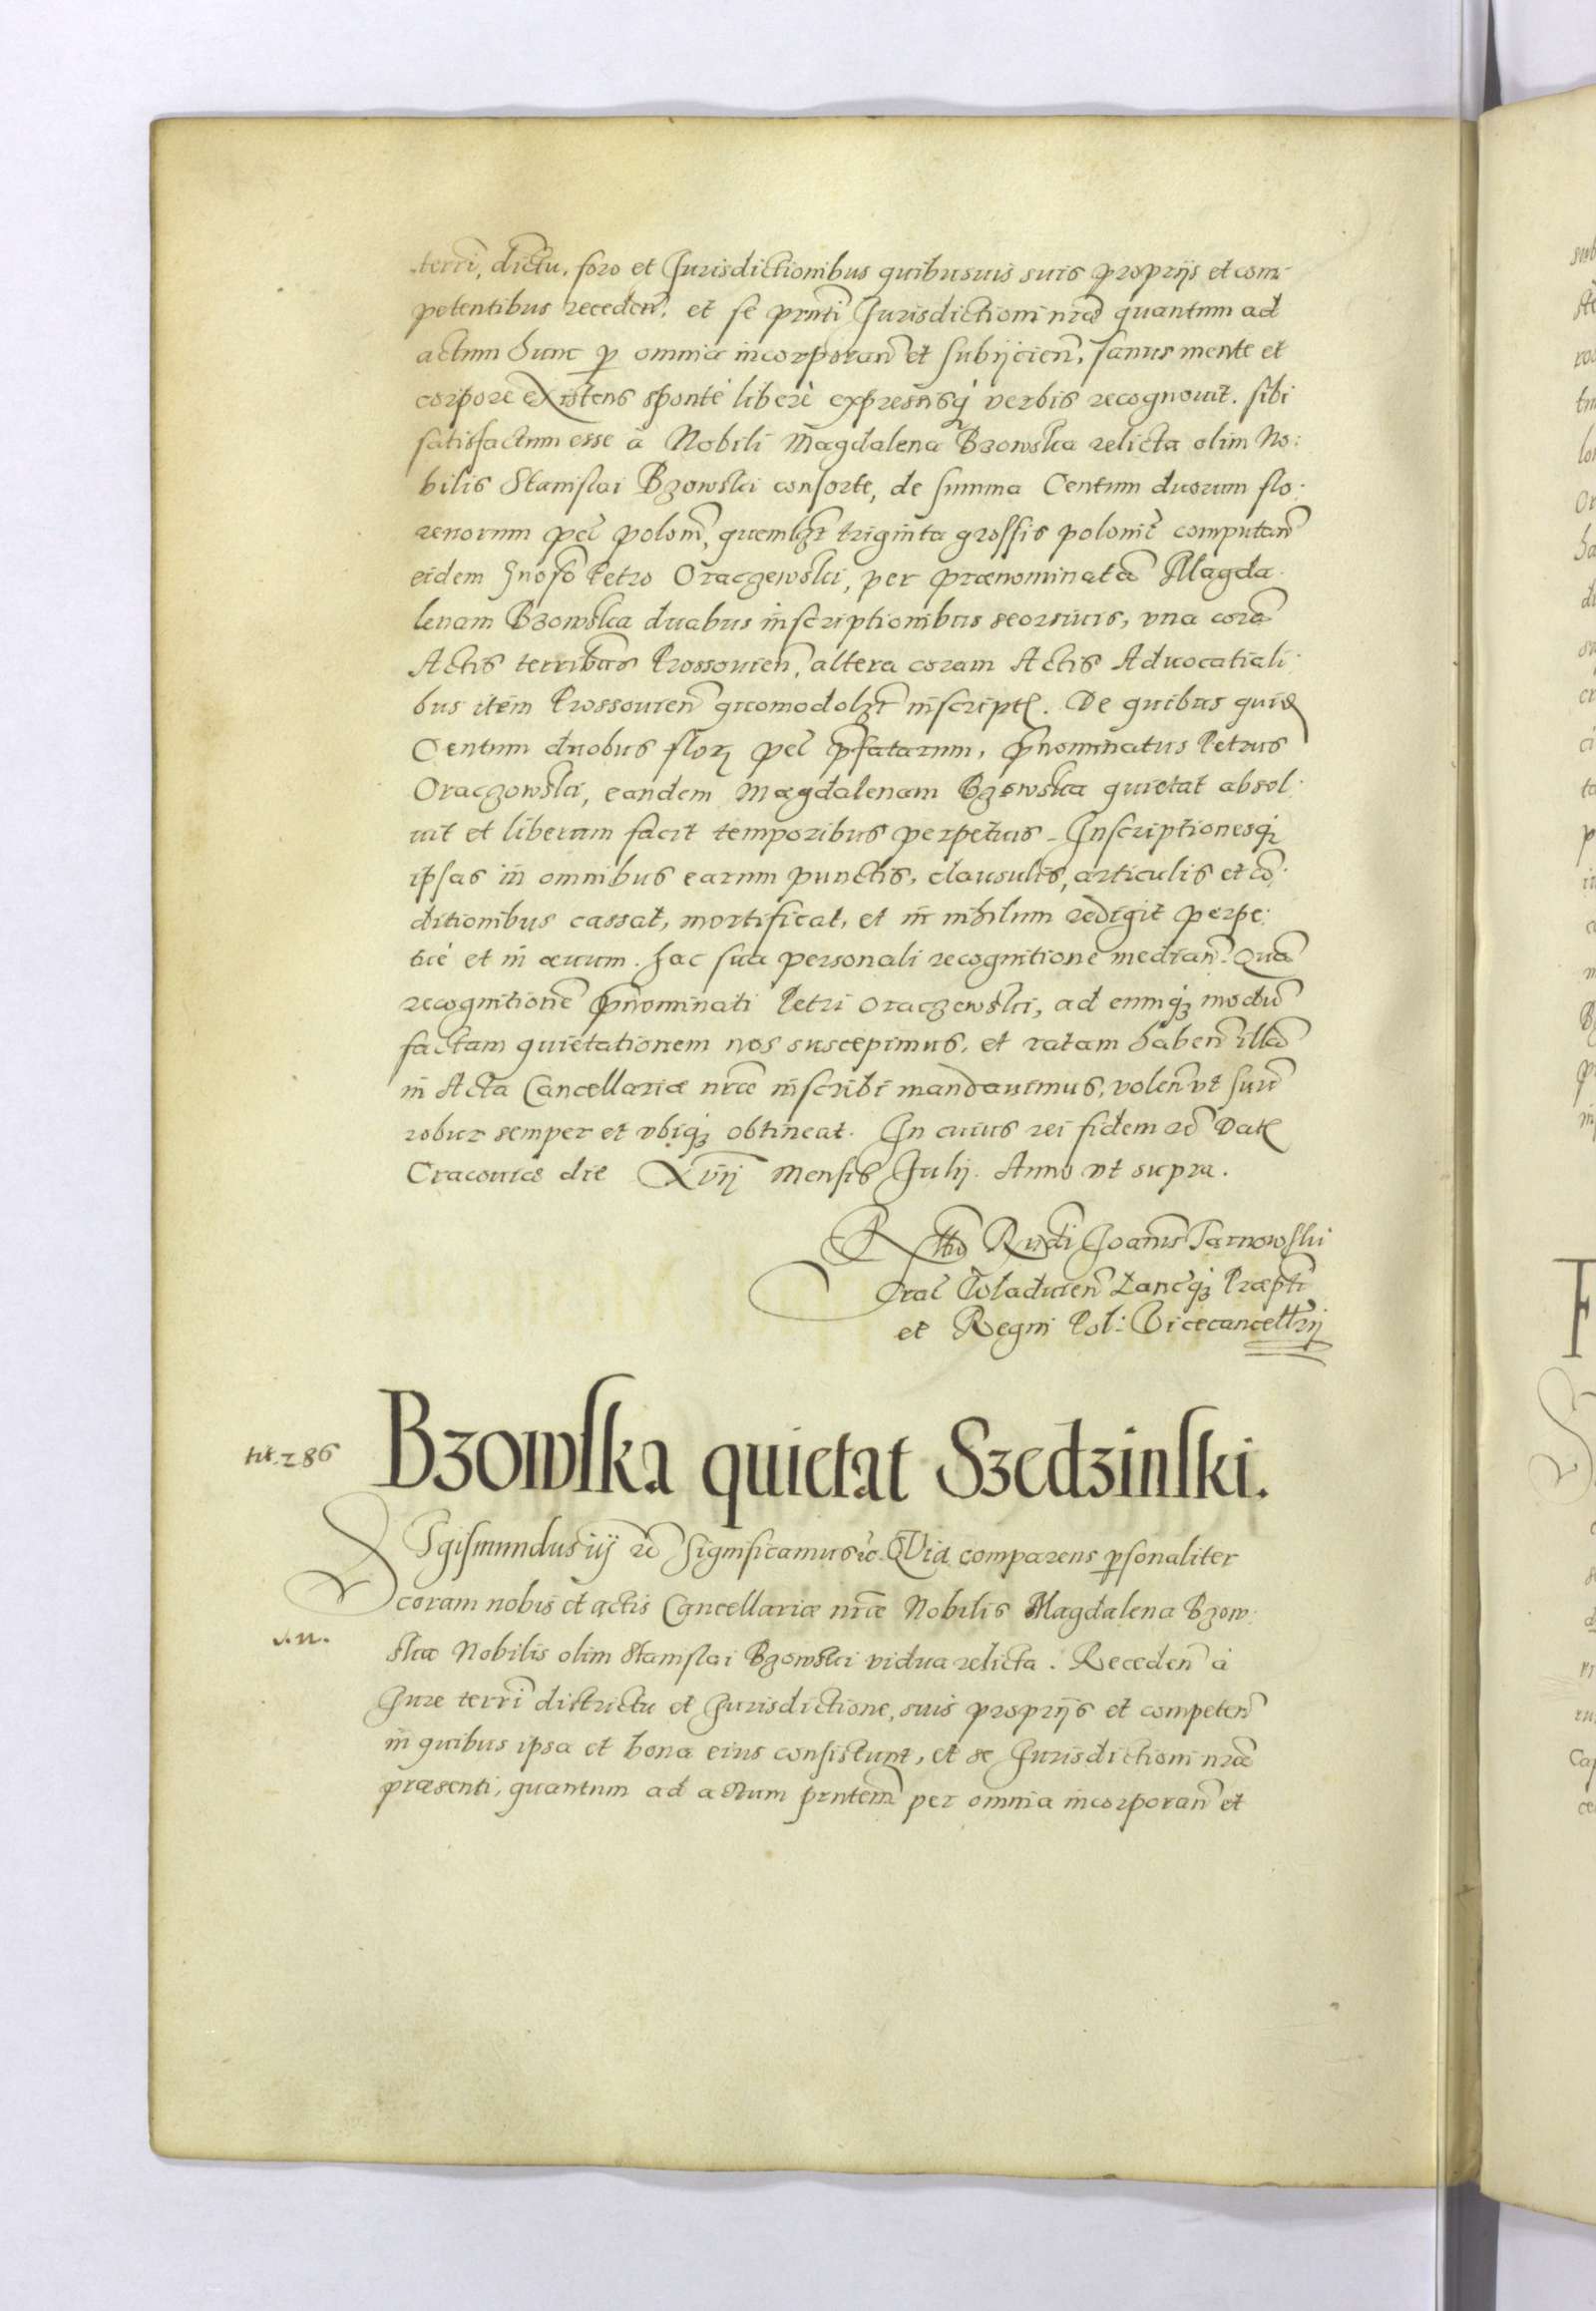 terrī, dictu, foro et Jurisdictionibus quibusuis suis proprijs et com-
petentibus receden̄, et se pn̄ti Jurisdictioni nr̄æ quantum ad
actum hunc p̱ omnia incorporan̄ et subijcien̄, sanus mente et
corpore existens spontè liberè expressisq̨ verbis recognouit. sibi
satisfactum esse à Nobili Magdalena Bzowska relicta olim No:
bilis Stanislai Bzowski consorte, de summa Centum duorum flo:
renorum pec̄ polon̄, quemlz̄t triginta grossis polonic̄ computan̄
eidem Gnoso Petro Oraczewski, per prænominatā Magda:
lenam Bzowska duabus inscriptionibus seorsiuis, vna corā
Actis terrībus Prossouien̄, altera coram Actis Aduocatiali:
bus item Prossouien̄ quomodolz̄t inscript̄. De quibus quid̄
Centum duobus flor̄ pec̄ p̄fatarum, p̄nominatus Petrus
Oraczowski, eandem Magdalenam Bzowska quietat absol:
uit et liberam facit temporibus perpetuis. Inscriptionesq̨
ipsas in omnibus earum punctis, clausulis, articulis et cō:
ditionibus cassat, mortificat, et in nihilum redigit perpe:
tuè et in æuum. hac sua personali recognitione median̄. Quā
recognitionē p̄nominati Petri Oraczewski, ad eumq̨ modū
factam quietationem nos suscepimus, et ratam haben̄ illā
in Acta Cancellariæ nr̄æ inscribi mandauimus, volen̄ vt suū
robur semper et vbiq̨ obtineat. In cuius rei fidem &c̄ Dat̄
Cracouiæ die Xvij mensis Julij. Anno vt supra.
R̄elatio R̄ndi Joannis Tarnowski
Crac̄ Wladislauien̄ Lancq̨ Præpti
et Regni Pol: Vicecancell̄rij
Bzowska quietat Szedzinski.
tit. 286
Sigismundus iij &c̄ Significamus &c. Quia comparens p̱sonaliter
coram nobis et actis Cancellariæ nr̄æ Nobilis Magdalena Bzow:
ska Nobilis olim Stanislai Bzowski vidua relicta. Receden̄ à
Jure terrī districtu et Jurisdictione, suis proprijs et competen̄
in quibus ipsa et bona eius consistunt, et se Jurisdictioni nr̄æ
præsenti, quantum ad actum pn̄tem per omnia incorporan̄ et